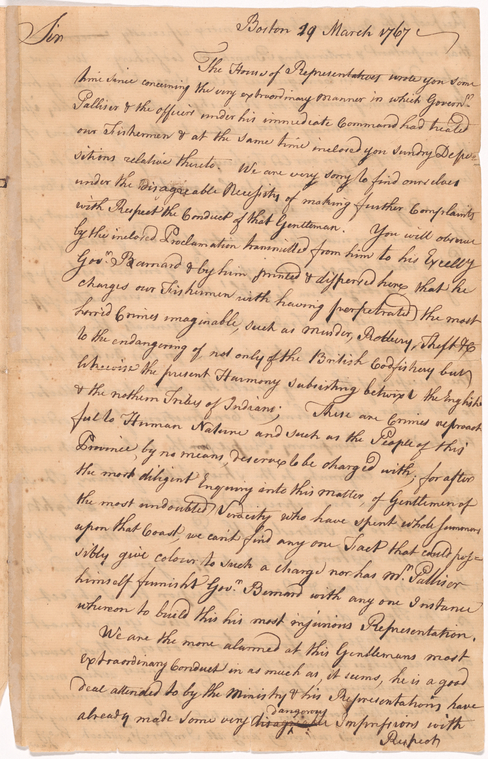 Sir
Boston 19 March 1767
The House of Representatives wrote you some
time since concerning the very extraordinary manner in which Governr.
Palliser & the officers under his immediate Command had treated
our Fishermen & at the same time inclosed you sundry Depo-
sitions relative thereto. We are very sorry to find ourselves
under the disagreable Necessity of making further Complaints
with Respect the Conduct of that Gentleman. You will observe
by the inclosed Proclamation transmitted from him to his Excelly
Govr. Barnard & by him printed & dispersed here that he
charges our Fishermen with having perpetrated the most
horrid Crimes imaginable, such as murder, Robbery, Theft &c
to the endangering of not only of the British Codfishery but
likewise the present Harmony subsisting betwixt the English
& the nothern Tribes of Indians; These are Crimes reproach
ful to Human Nature and such as the People of this
Province by no means deserve to be charged with; for after
the most diligent Enquiry into this matter, of Gentlemen of
the most undoubted Veracity who have spent whole summers
upon that Coast, we can't find any one Fact that could pos-
sibly give colour to such a charge nor has Mr. Palliser
himself furnisht Govr. Bernard with any one Instance
whereon to build this his most injurious Representation.
We are the more alarmed at this Gentlemans most
extraordinary Conduct in as much as, it seems, he is a good
deal attended to by the Ministry & his Representations have
dangerous
already made some very Impressions with
Respect